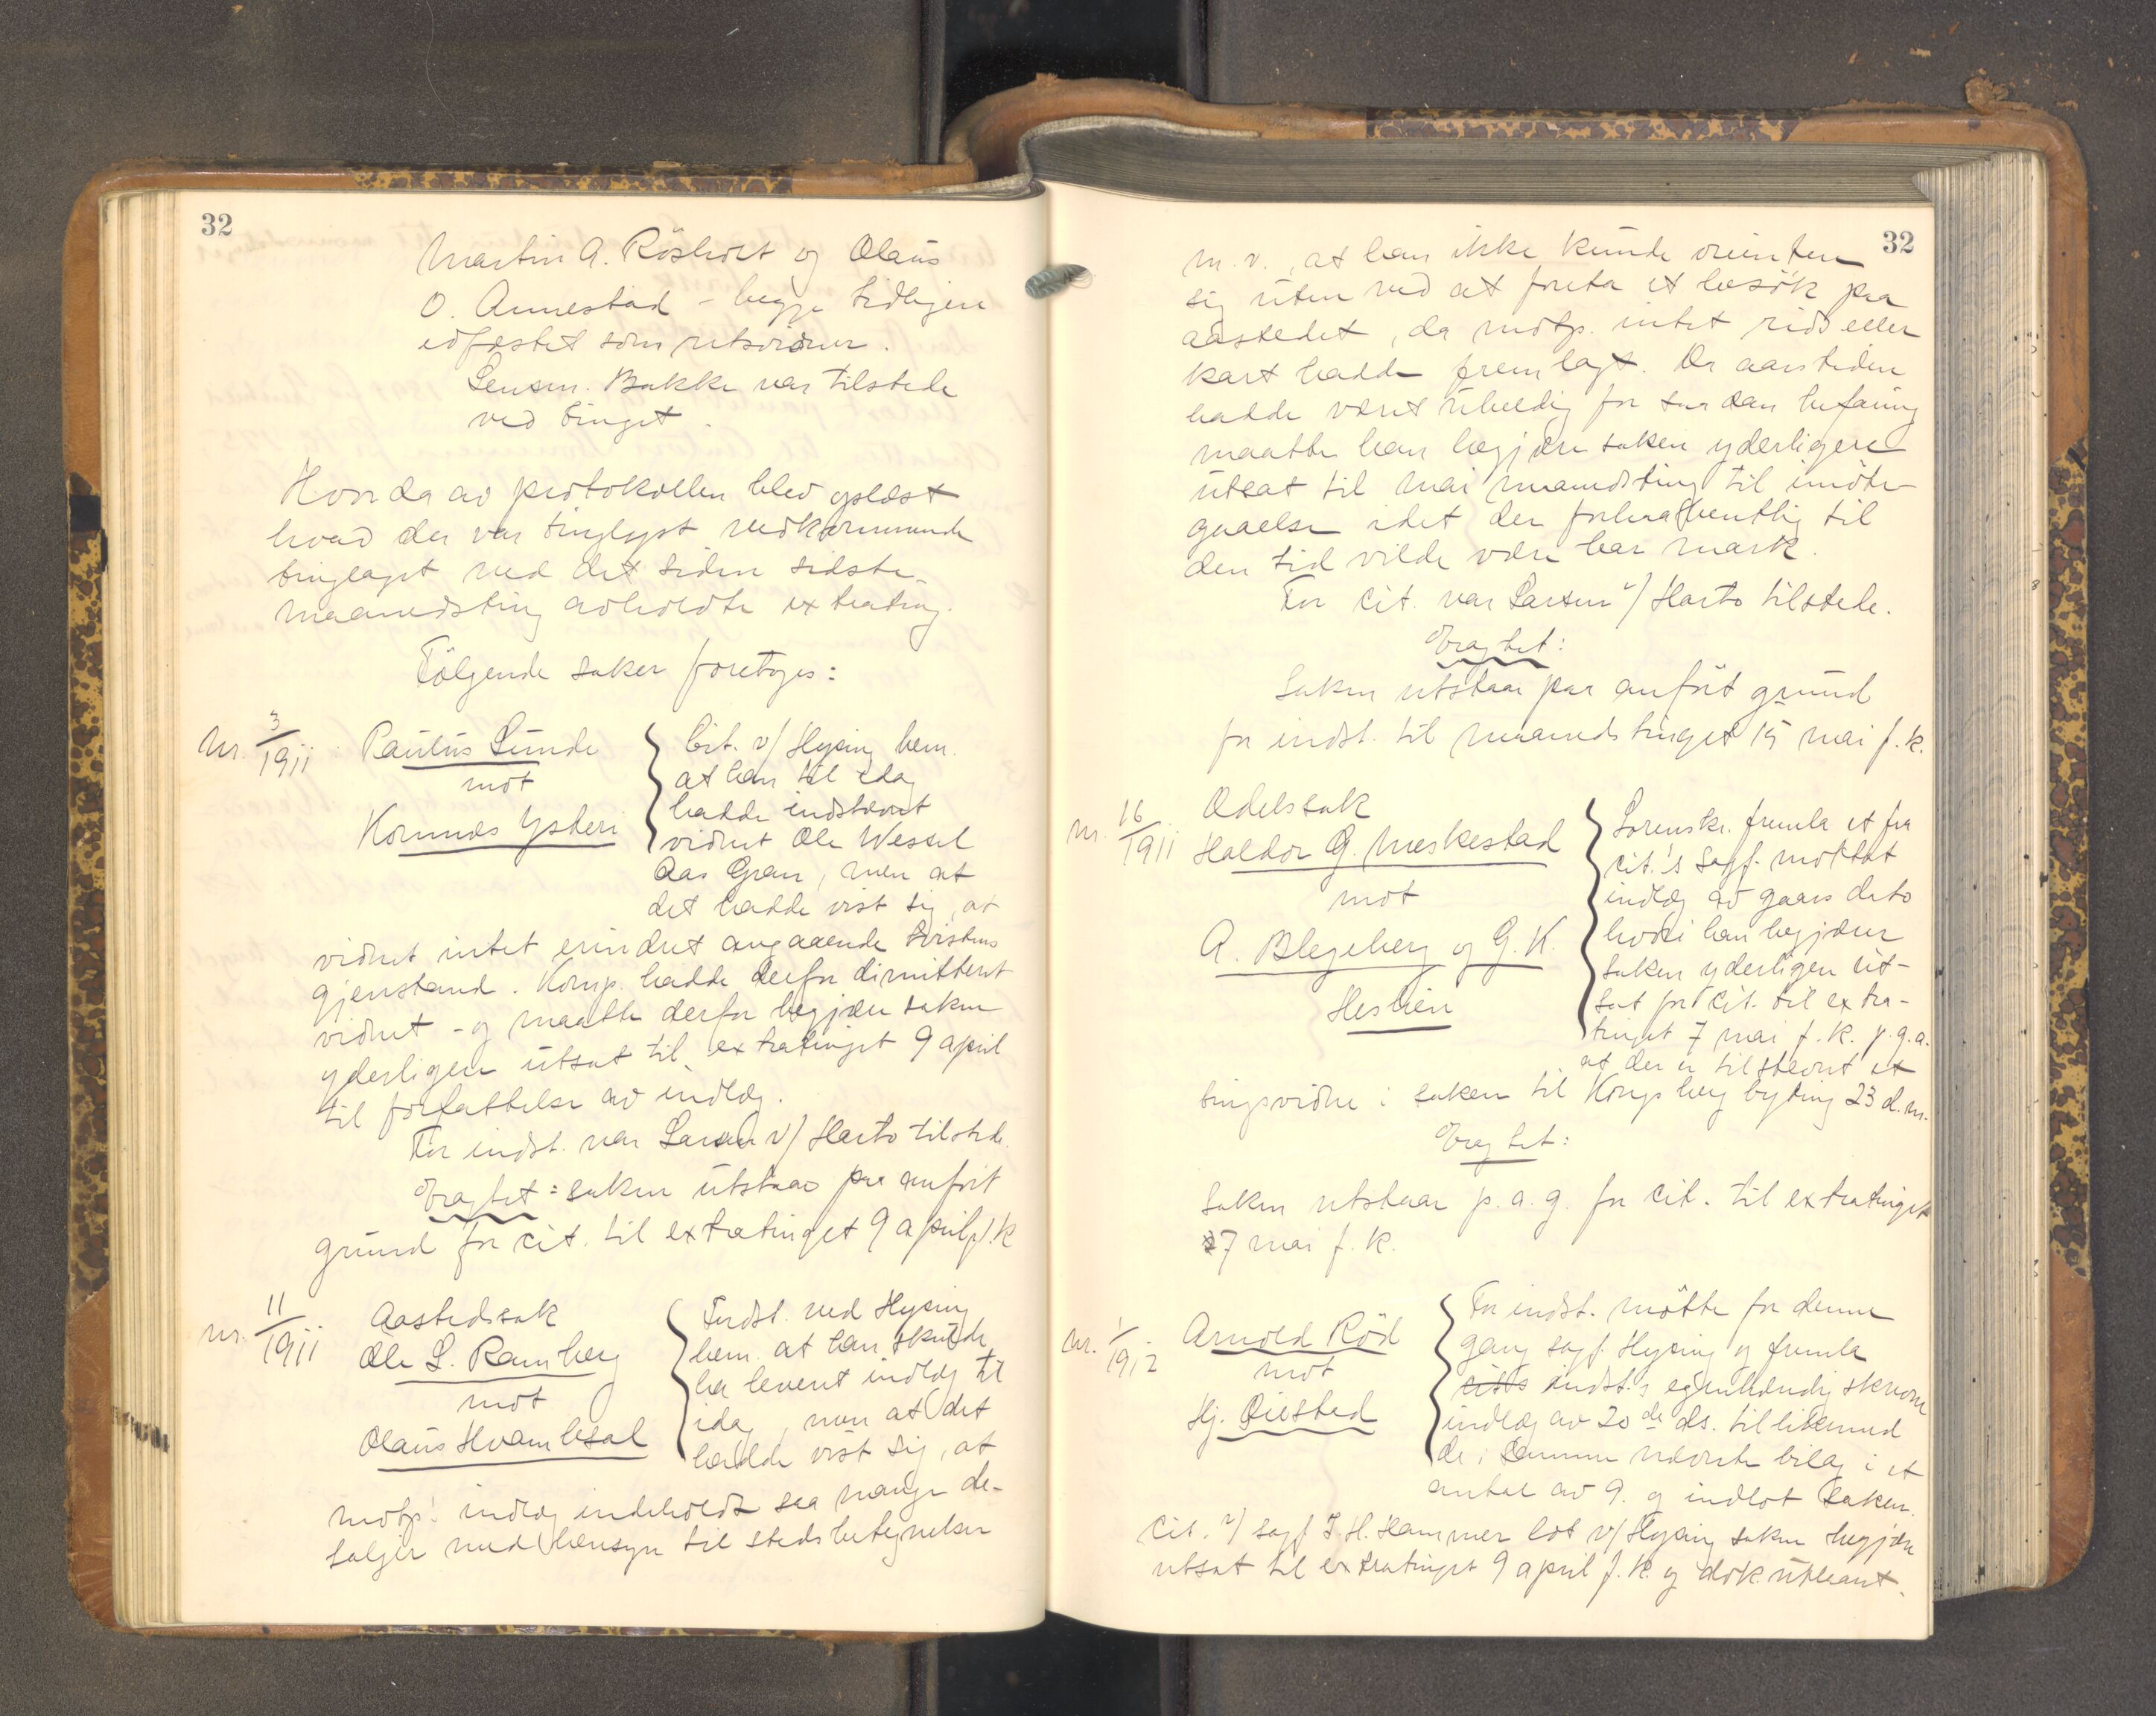 32
Martin A. Rösholt og Olaus
O. Annestad - begge tidligere
edfæstet som retsvidner.
Lensm. Bakke var tilstede
ved tinget.
Hvorda av protokollen blev oplæst
hvad der var tinglyst vedkommende
tinglaget ved det siden sidste
maanedsting avholdte extrating.
Følgende saker foretoges:
Nr. 3/1911 Paulus Lunde
mot
Kornnæs Ysteri
Cit. v/ Hysing bem.
at han til idag
hadde indstævnt
vidnet Ole Wessel
Aas Gran, men at
det hadde vist sig, at
vidnet intet erindret angaaende tvistens
gjenstand. Komp. hadde derfor dimittert
vidnet - og maatte derfor begjære saken
yderligere utsat til extratinget 9 april
til forfattelse av indlæg.
For indst. var Larsen v/ Harto tilstede.
Eragtet: saken utstaar paa anført
grund for cit. til extratinget 9 april f.k
Nr. 11/1911 Aastedssak
Ole L. Ramberg
mot
Olaus Hvambsal
Indst. ved Hysing
bem. at han skulde
ha levert indlæg til
idag, men at det
hadde vist sig, at
motp.' indlæg indeholdt saa mange de-
taljer med hensyn til stedsbetegnelser
32
m. v., at han ikke kunde orientere
sig uten ved at foreta et besök paa
aastedet, da motp. intet rids eller
kart hadde fremlagt. Da aarstiden
hadde været uheldig for saadan befaring
maatte han begjære saken yderligere
utsat til mai maanedsting til imöte-
gaaelse idet der forhaabentlig til
den tid vilde være bar mark.
For cit. var Larsen v/ Harto tilstede.
Eragtet:
Saken utstaar paa anfört grund
for indst. til maanedstinget 15 mai f.k.
Nr. 16/1911 Odelssak
Haldor G. Meskestad
mot
A. Blegeberg og G. K.
Hestien
Sorenskr. fremla et fra
cit.'s sagf. mottat
indlæg av gaars dato
hvori han begjærer
saken yderligere ut-
sat for cit. til extra-
tinget 7 mai f.k. p.g.a.
at der er tilstevnt et
tingsvidne i saken til Kongsberg byting 23 d.m.
Eragtet:
Saken utstaar p.a.g. for cit. til extratinget
7 mai f.k.
Nr. 1/1912 Arnold Röd
mot
Hj. Öiestad
For indst. mötte for denne
gang sagf. Hysing og fremla
cit's indst.'s egenhændig skrevne
indlæg av 20de ds. tillikemed
de i samme nævnte bilag i et
antal av 9. og indlot saken.
Cit. v/ sagf. J. H. Hammer lot v/ Hysing saken begjære
utsat til extratinget 9 april f.k. og dok. utleant.